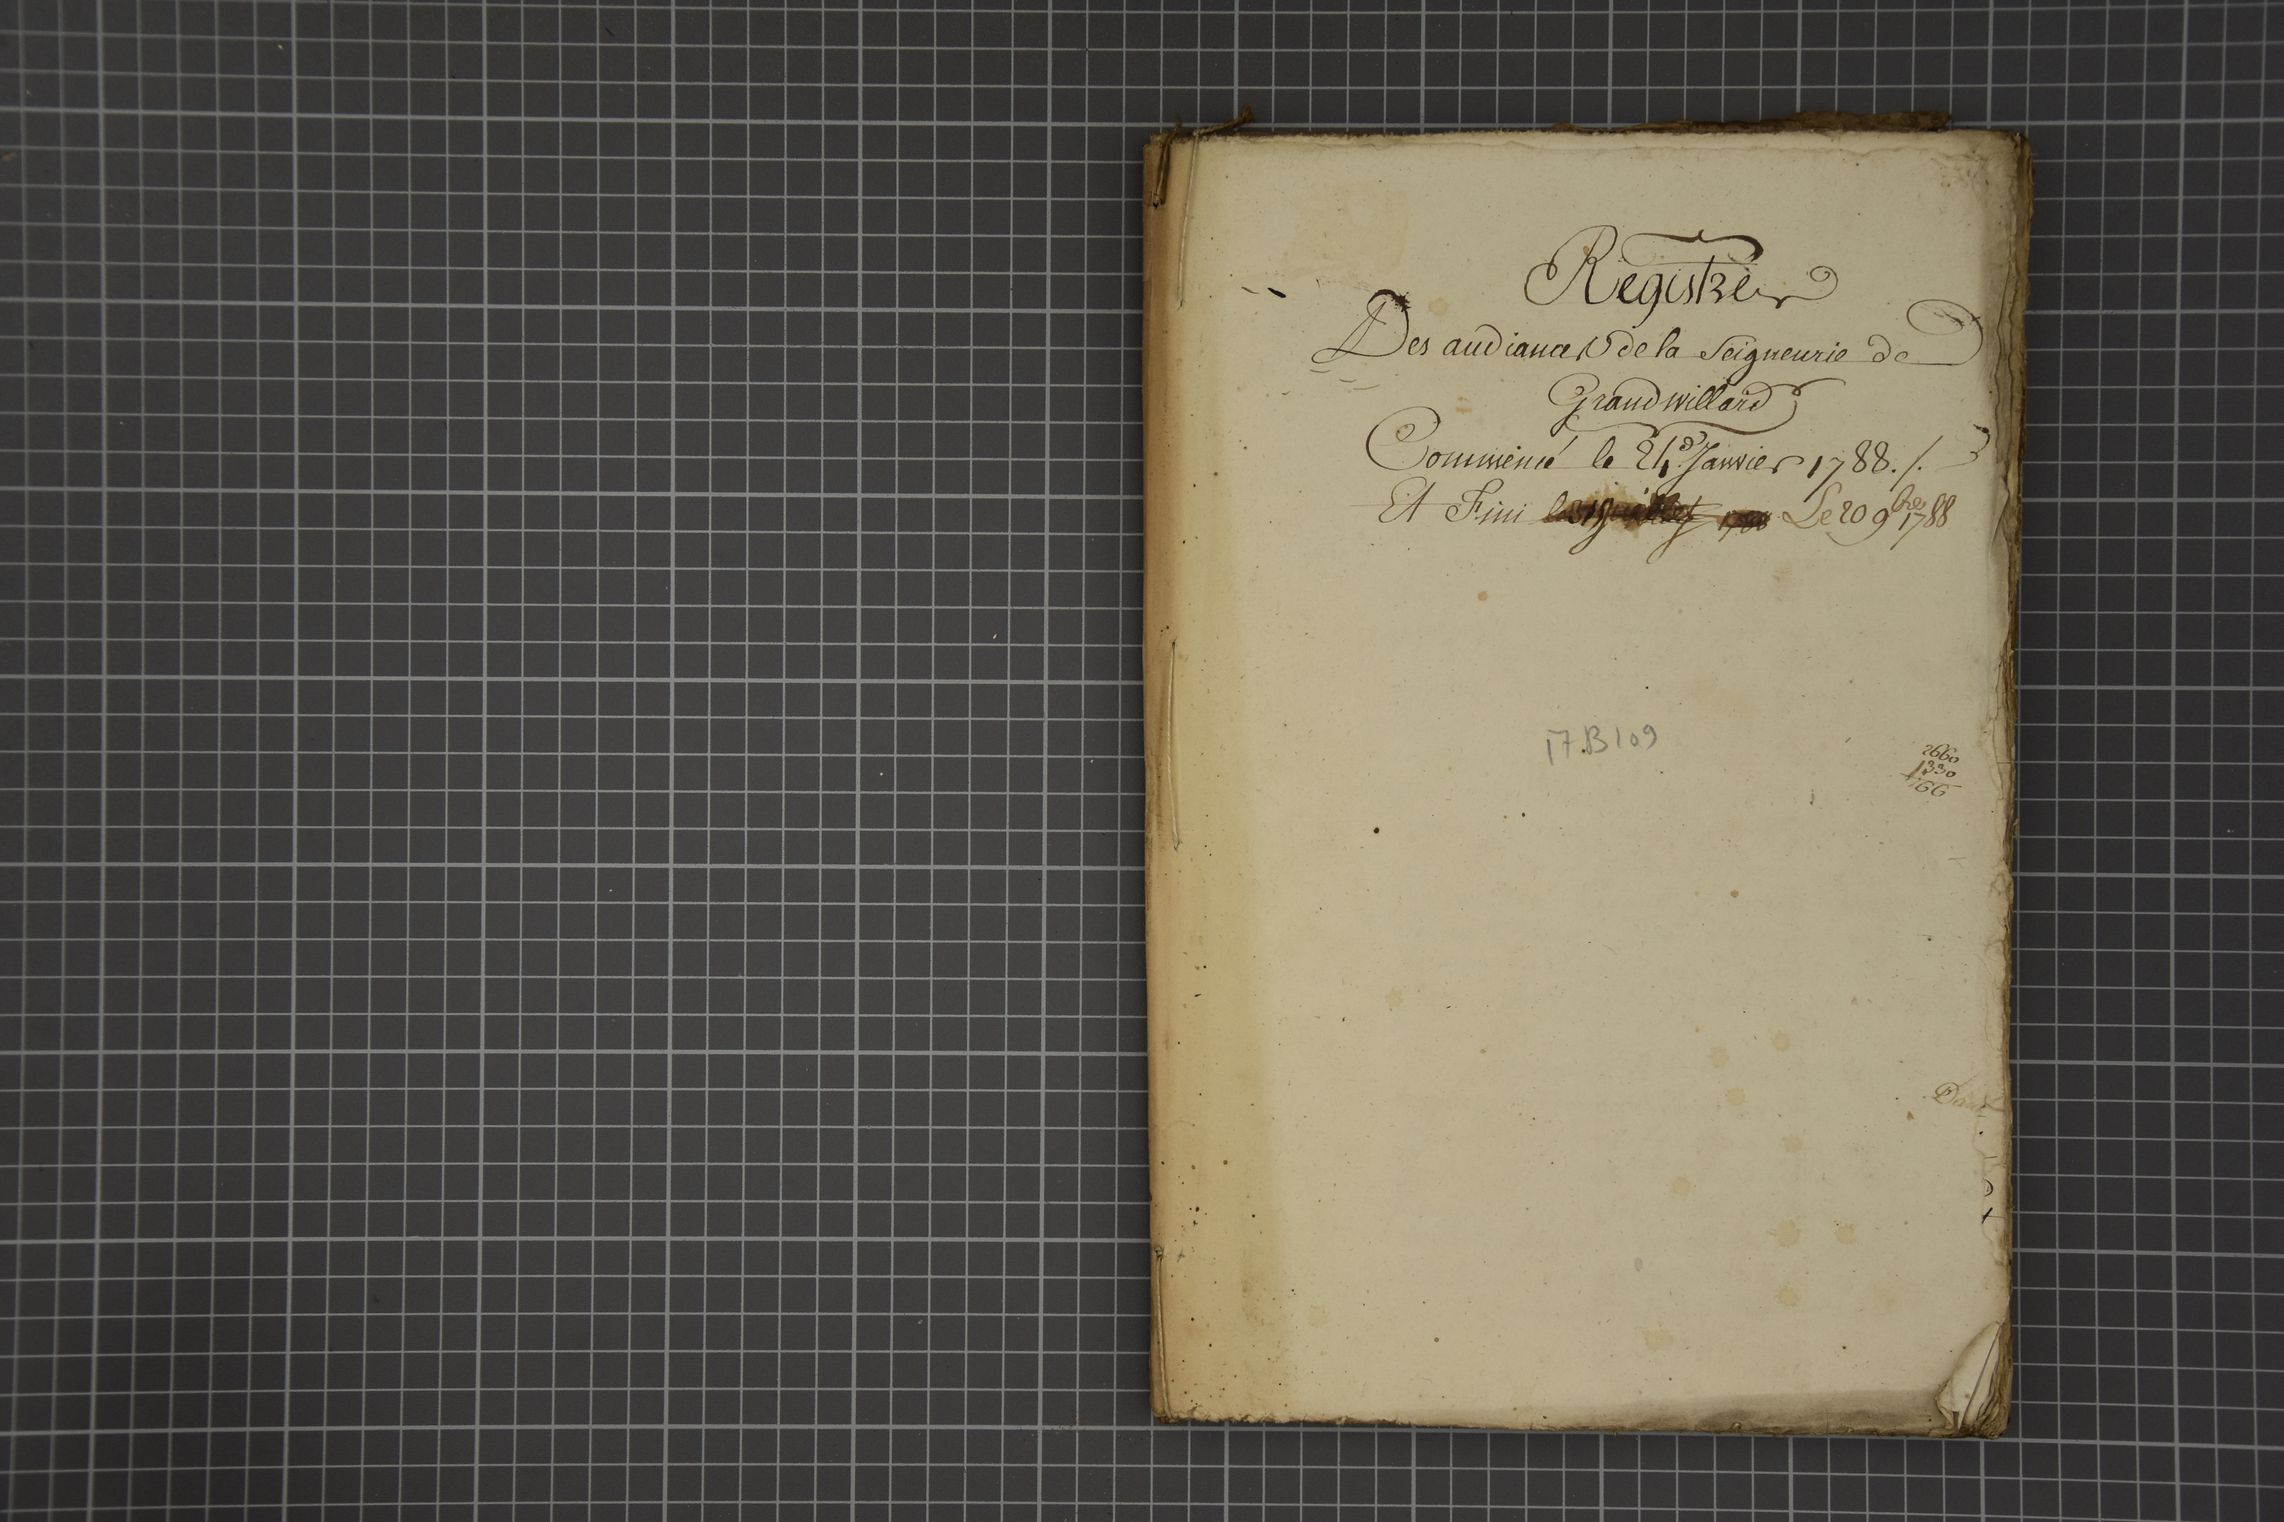 Registre
Des audiances de la Seigneurie de
Grandwillard
Commencé le 21 Janvier 1788. /.
Et Fini Le 20 9bre 1788
17.B109
2660
1330